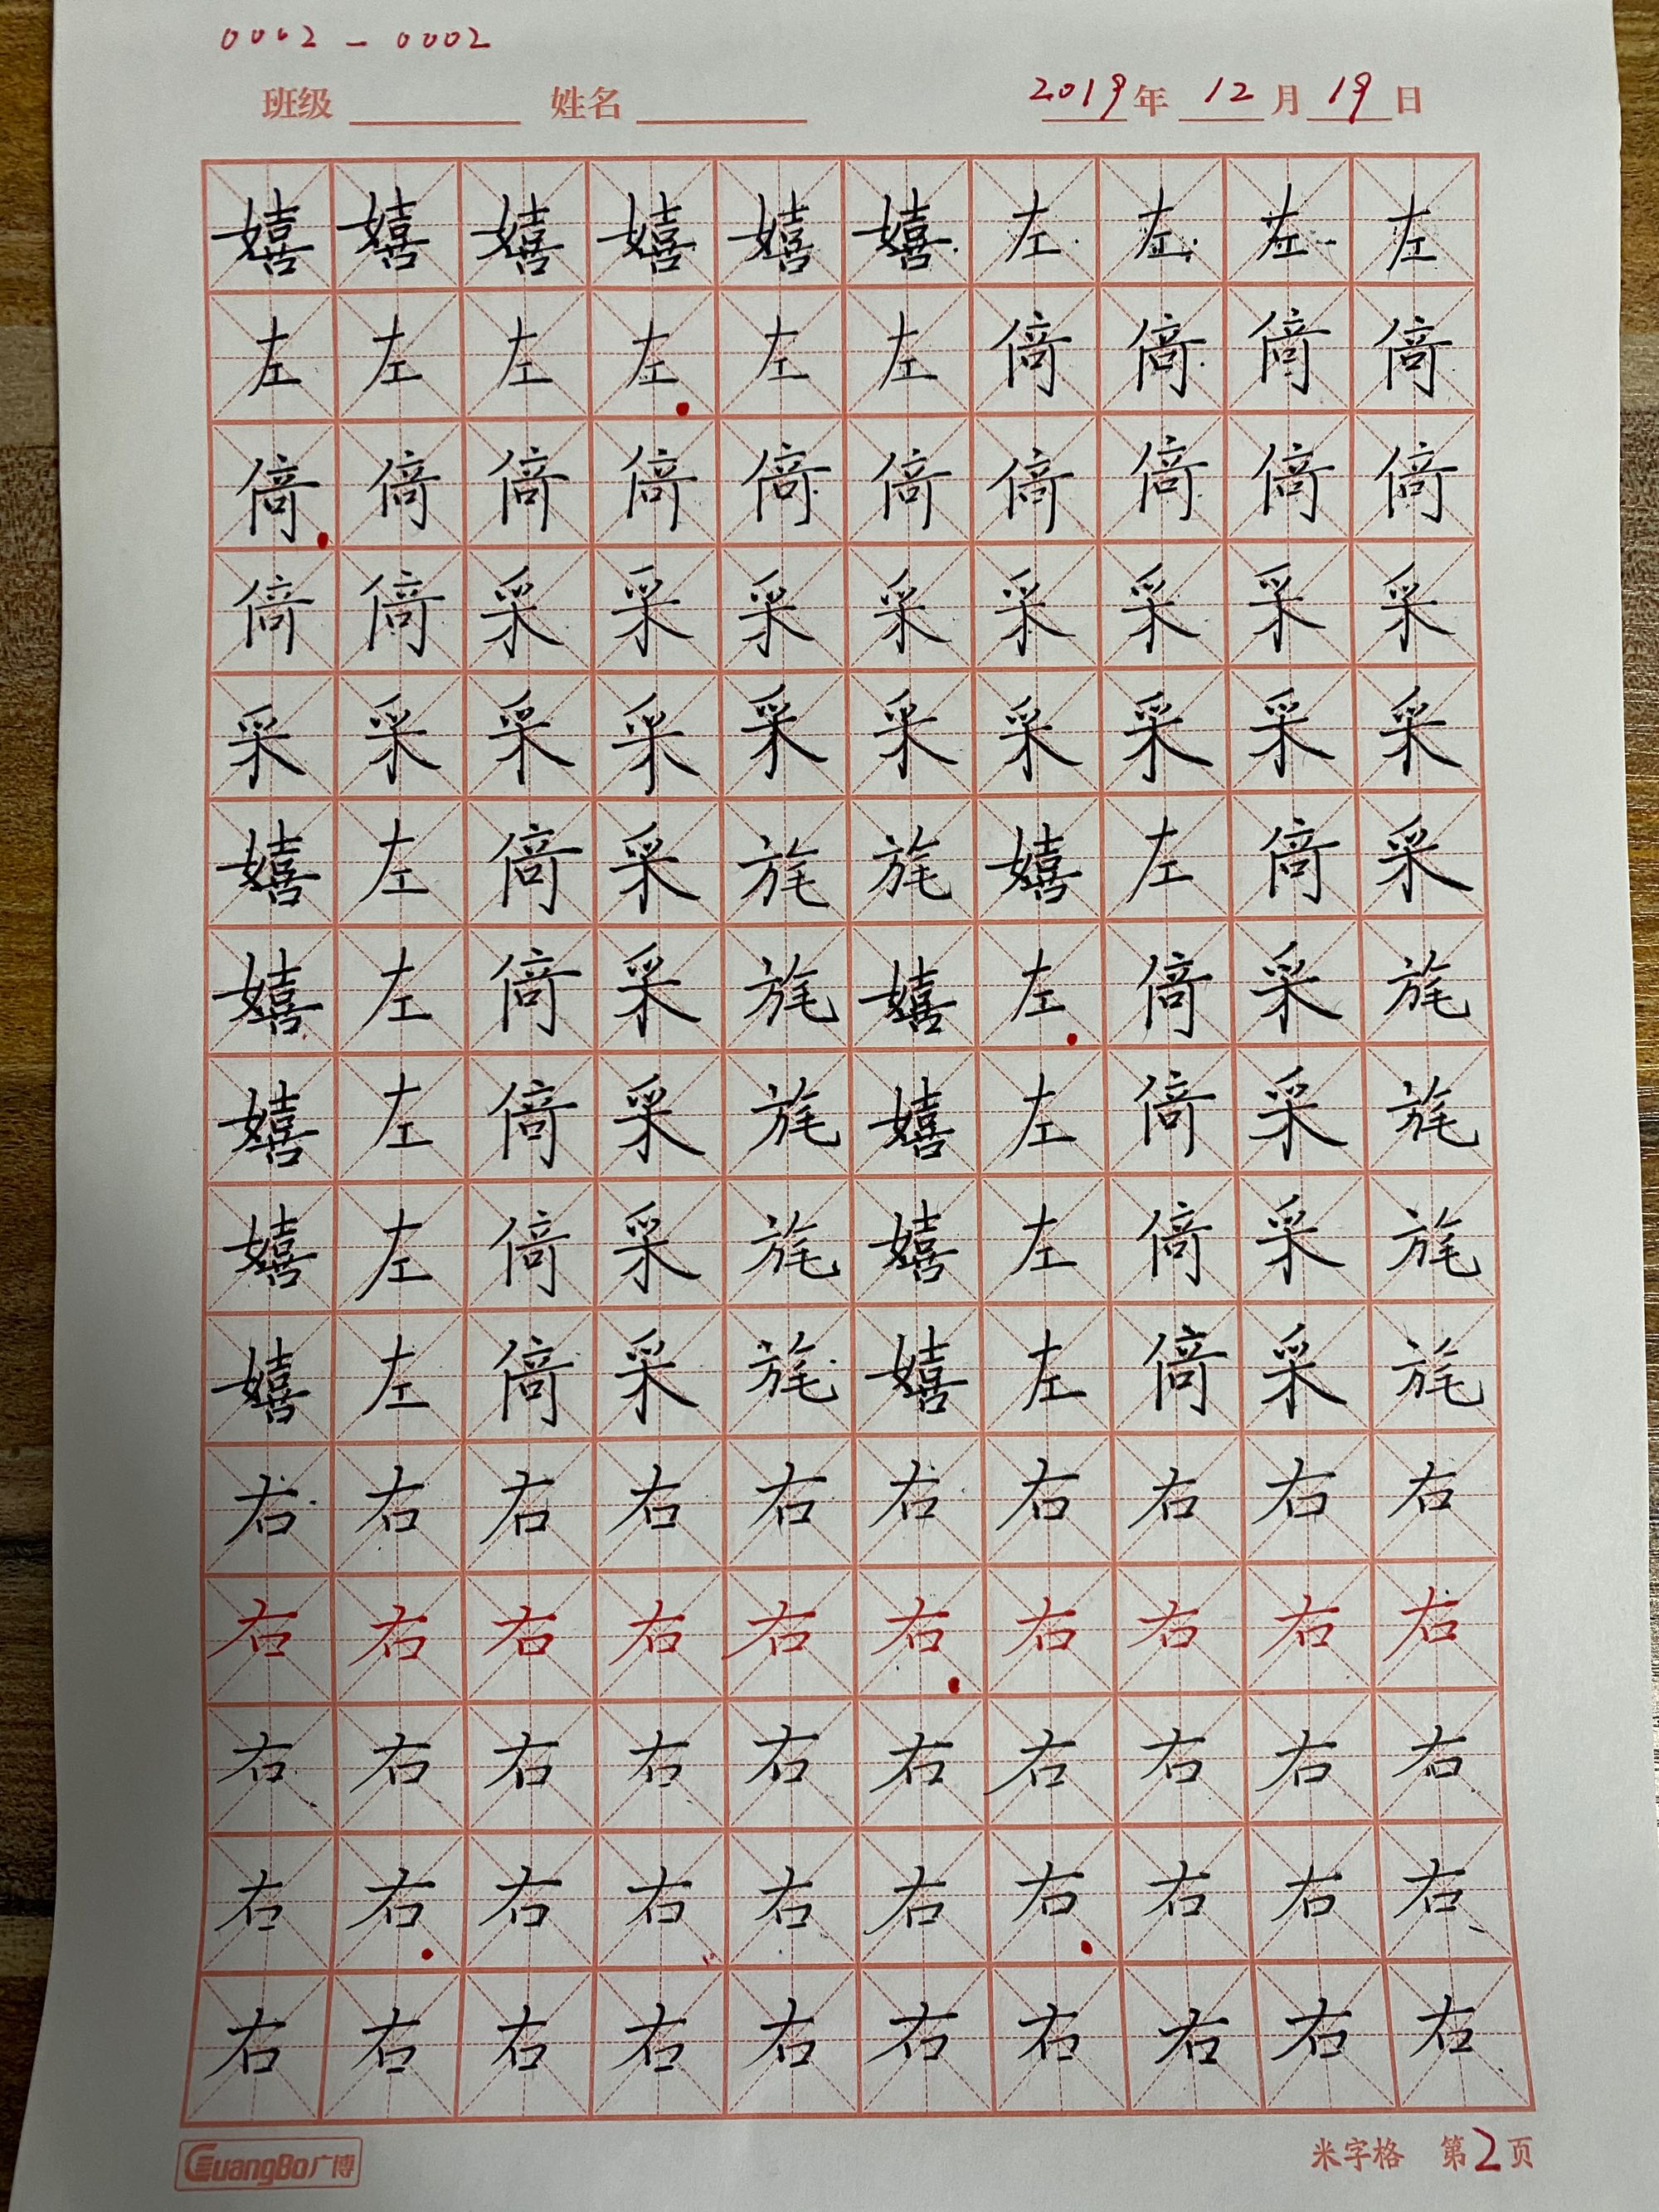 0002 - 0002
班级 姓名 2019年 12月 19日
嬉嬉嬉嬉嬉嬉左左左左
左左左左左左倚倚倚倚
倚倚倚倚倚倚倚倚倚倚
倚倚采采采采采采采采
采采采采采采采采采采
嬉左倚采旄旄嬉左倚采
嬉左倚采旄嬉左倚采旄
嬉左倚采旄嬉左倚采旄
嬉左倚采旄嬉左倚采旄
嬉左倚采旄嬉左倚采旄
右右右右右右右右右右
右右右右右右右右右右
右右右右右右右右右右
右右右右右右右右右右
右右右右右右右右右右
GuangBo广博 米字格 第2页